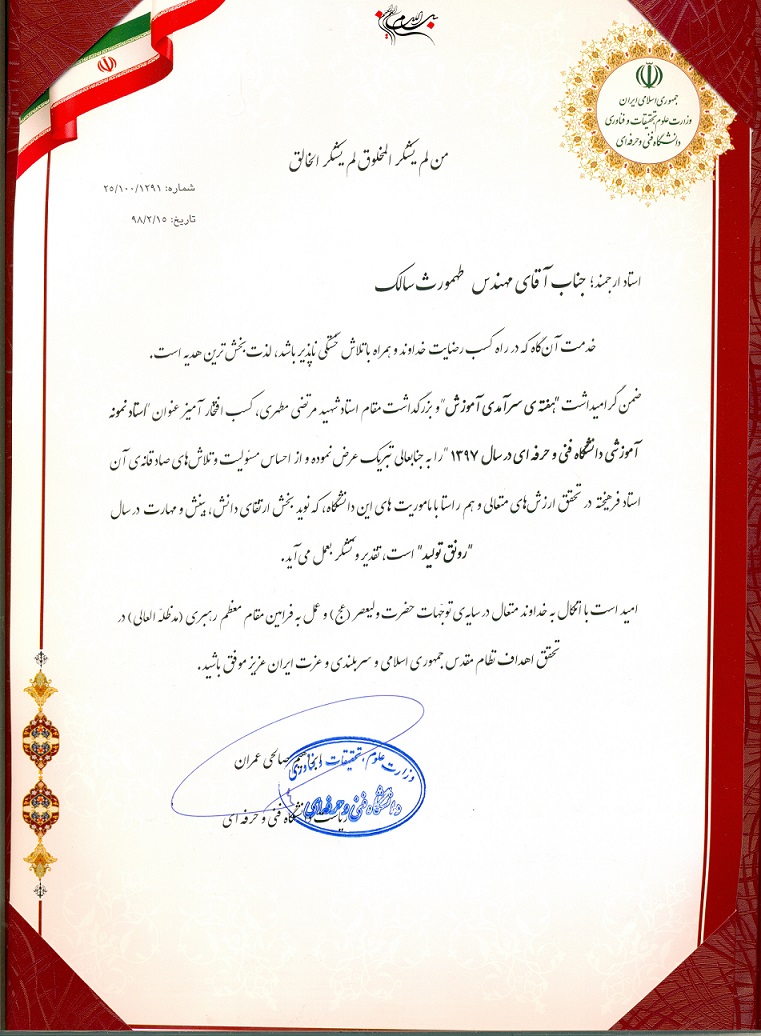 بسم الله الرحمن الرحیم
جمهوری اسلامی ایران
وزارت علوم، تحقیقات و فناوری
دانشگاه فنی و حرفه ای
من لم یشکر المخلوق لم یشکر الخالق
شماره: ۲۵/۱۰۰/۱۲۹۱
تاریخ: ۹۸/۲/۱۵
استاد ارجمند؛ جناب آقای مهندس طهمورث سالک
خدمت آن گاه که در راه کسب رضایت خداوند و همراه با تلاش خستگی ناپذیر باشد، لذت بخش ترین هدیه است.
ضمن گرامیداشت "هفته ی سرآمدی آموزش" و بزرگداشت مقام استاد شهید مرتضی مطهری، کسب افتخار آمیز عنوان "استاد نمونه
آموزشی دانشگاه فنی و حرفه ای در سال ۱۳۹۷" را به جنابعالی تبریک عرض نموده و از احساس مسئولیت و تلاش های صادقانه ی آن
استاد فرهیخته در تحقق ارزش های متعالی و هم راستا با ماموریت های این دانشگاه، که نوید بخش ارتقای دانش، بینش و مهارت در سال
"رونق تولید" است، تقدیر و تشکر بعمل می آید.
امید است با اتکال به خداوند متعال در سایه ی توجّهات حضرت ولیعصر (عج) و عمل به فرامین مقام معظم رهبری (مدظلّه العالی) در
تحقق اهداف نظام مقدس جمهوری اسلامی و سربلندی و عزت ایران عزیز موفق باشید.
ابراهیم صالحی عمران
ریاست دانشگاه فنی و حرفه ای
وزارت علوم، تحقیقات و فناوری
دانشگاه فنی و حرفه ای